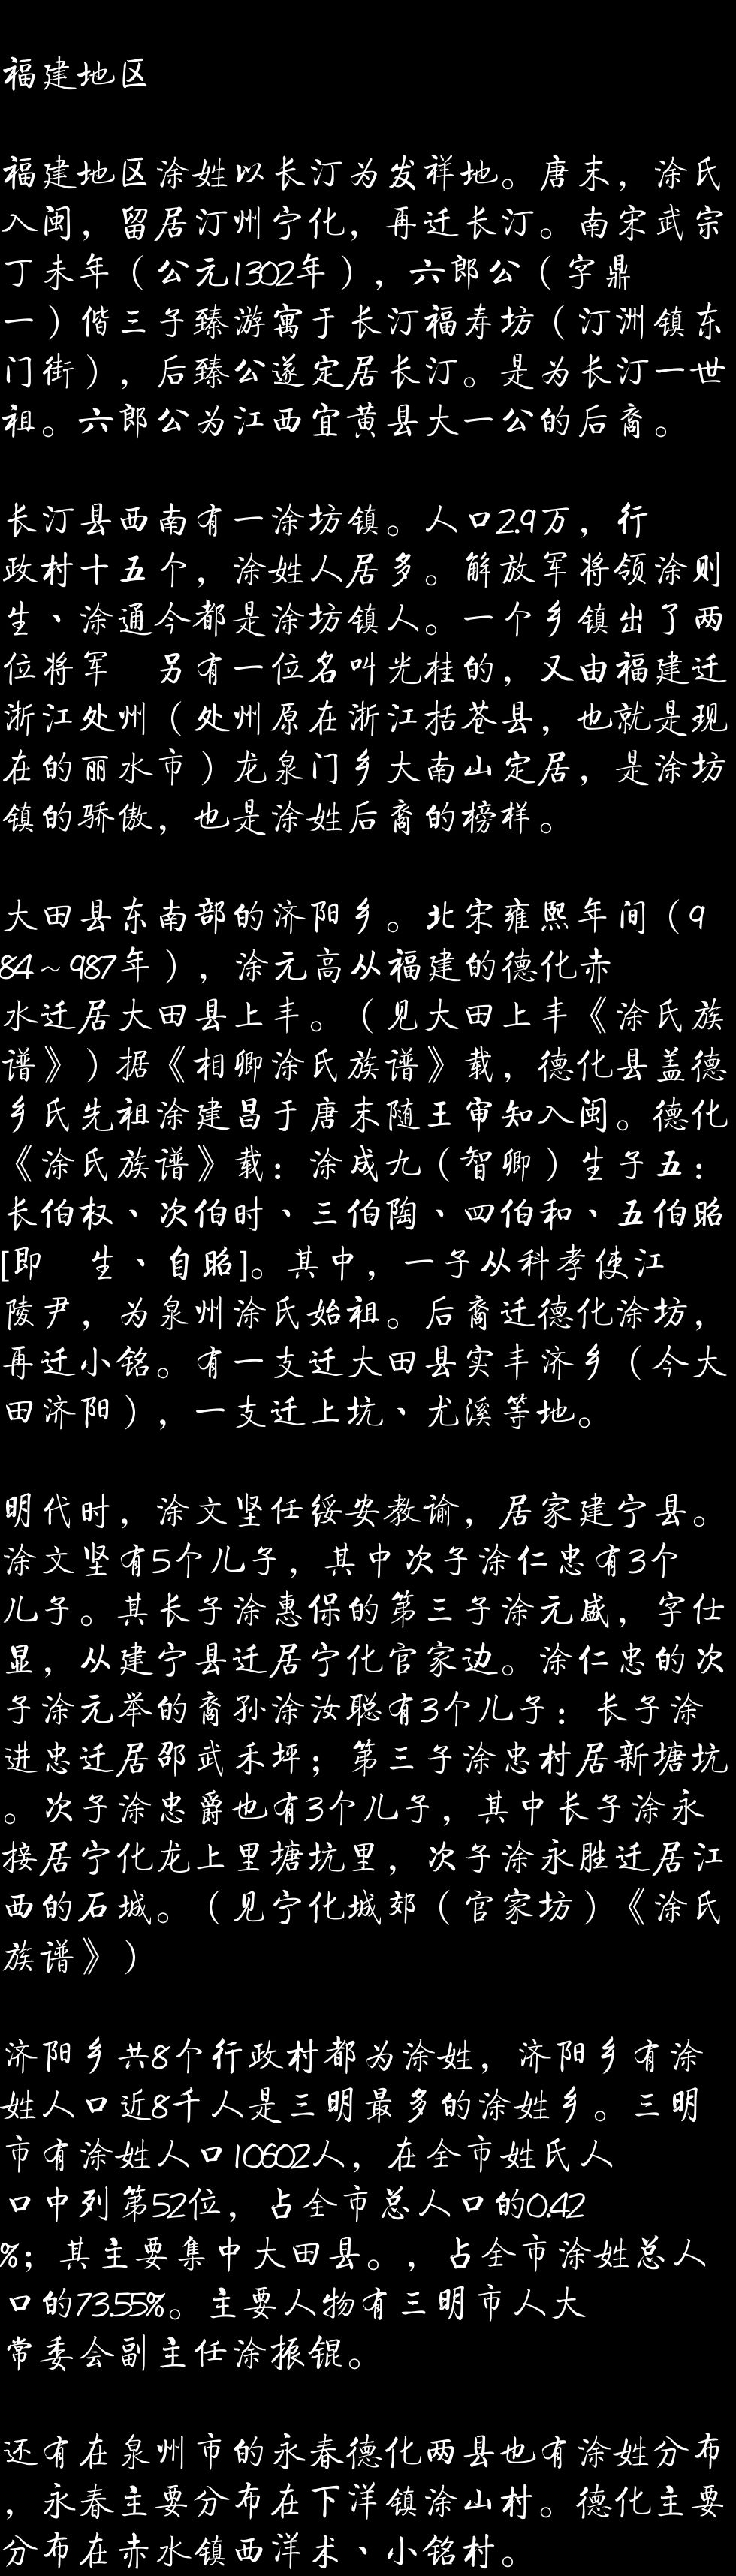 福建地区
福建地区涂姓以长汀为发祥地。唐末，涂氏
入闽，留居汀州宁化，再迁长汀。南宋武宗
丁未年（公元1302年），六郎公（字鼎
一）偕三子臻游寓于长汀福寿坊（汀洲镇东
门街），后臻公遂定居长汀。是为长汀一世
祖。六郎公为江西宜黄县大一公的后裔。
长汀县西南有一涂坊镇。人口2.9万，行
政村十五个，涂姓人居多。解放军将领涂则
生、涂通今都是涂坊镇人。一个乡镇出了两
位将军　另有一位名叫光桂的，又由福建迁
浙江处州（处州原在浙江括苍县，也就是现
在的丽水市）龙泉门乡大南山定居，是涂坊
镇的骄傲，也是涂姓后裔的榜样。
大田县东南部的济阳乡。北宋雍熙年间（9
84～987年），涂元高从福建的德化赤
水迁居大田县上丰。（见大田上丰《涂氏族
谱》）据《相卿涂氏族谱》载，德化县盖德
乡氏先祖涂建昌于唐末随王审知入闽。德化
《涂氏族谱》载：涂成九（智卿）生子五：
长伯权、次伯时、三伯陶、四伯和、五伯昭
[即　生、自昭]。其中，一子从科孝使江
陵尹，为泉州涂氏始祖。后裔迁德化涂坊，
再迁小铭。有一支迁大田县实丰济乡（今大
田济阳），一支迁上坑、尤溪等地。
明代时，涂文坚任绥安教谕，居家建宁县。
涂文坚有5个儿子，其中次子涂仁忠有3个
儿子。其长子涂惠保的第三子涂元盛，字仕
显，从建宁县迁居宁化官家边。涂仁忠的次
子涂元举的裔孙涂汝聪有3个儿子：长子涂
进忠迁居邵武禾坪；第三子涂忠村居新塘坑
。次子涂忠爵也有3个儿子，其中长子涂永
接居宁化龙上里塘坑里，次子涂永胜迁居江
西的石城。（见宁化城郊（官家坊）《涂氏
族谱》）
济阳乡共8个行政村都为涂姓，济阳乡有涂
姓人口近8千人是三明最多的涂姓乡。三明
市有涂姓人口10602人，在全市姓氏人
口中列第52位，占全市总人口的0.42
%；其主要集中大田县。，占全市涂姓总人
口的73.55%。主要人物有三明市人大
常委会副主任涂振锟。
还有在泉州市的永春德化两县也有涂姓分布
，永春主要分布在下洋镇涂山村。德化主要
分布在赤水镇西洋术、小铭村。